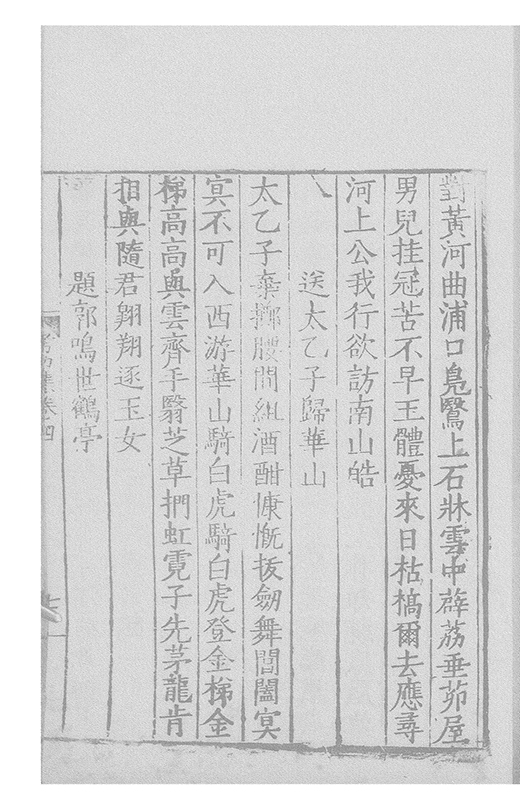 對黃河曲浦口鳧鷖上石牀雲中薜荔垂茆屋
男兒挂冠苦不早玉體憂來日枯槁爾去應尋
河上公我行欲訪南山皓
送太乙子歸華山
太乙子棄擲腰間組酒酣慷慨拔劒舞閶闔冥
冥不可入西游華山騎白虎騎白虎登金梯金
梯高高與雲齊手翳芝草捫虹霓子先茅龍肯
相與隨君翱翔逐玉女
題郭鳴世鶴亭
集卷四